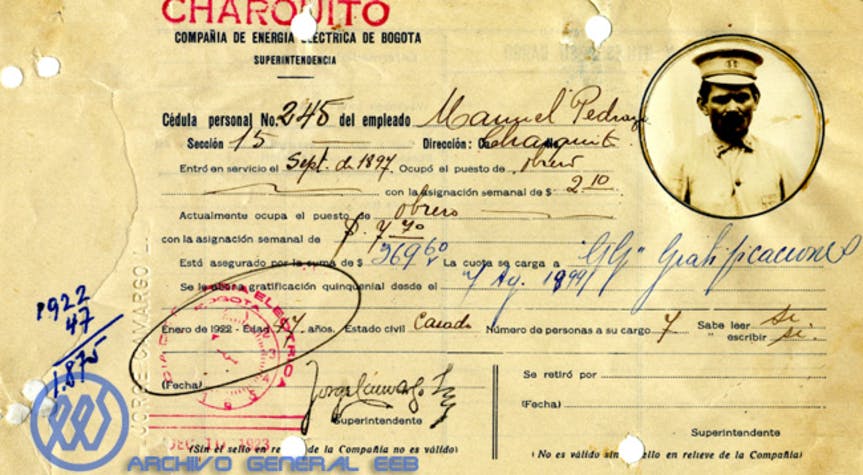 CHARQUITO
COMPAÑIA DE ENERGIA ELECTRICA DE BOGOTA
SUPERINTENDENCIA
Cédula personal No. 245 del empleado Manuel Pedraza
Sección 15 Dirección: Charquito
Entró en servicio el Sept. de 1897. Ocupó el puesto de obrero
con la asignación semanal de $ 2.10
Actualmente ocupa el puesto de obrero
con la asignación semanal de $ 7.70
Está asegurado por la suma de $ 369.60 La cuota se carga a "GG" Gratificaciones
Se le abona gratificación quinquenial desde el 7 Ag. 1899
Enero de 1922 - Edad 47 años. Estado civil Casado Número de personas a su cargo 7 Sabe leer si
" escribir si.
1922
47
1.875
JORGE CAMARGO L.
ELECTRICA
BOGOTA
(Fecha)
Jorge Camargo
Superintendente
DEC 1923
(Sin el sello en relieve de la Compañía no es válido)
Se retiró por
(Fecha)
Superintendente
(No es válido sin el sello en relieve de la Compañía)
ARCHIVO GENERAL EEB